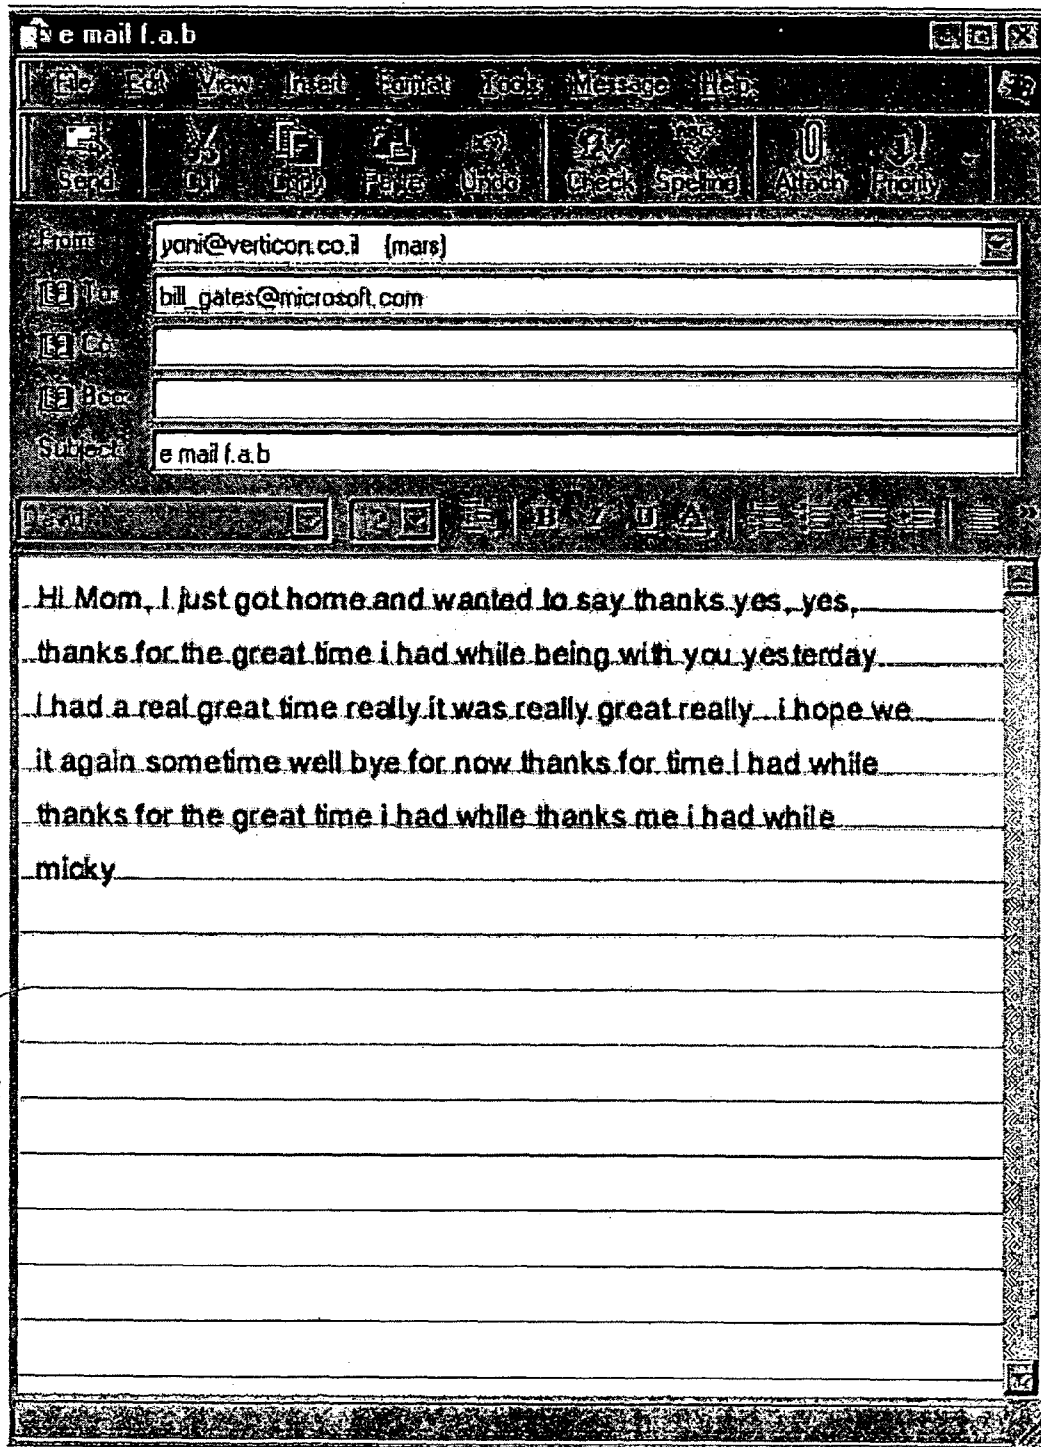 e mail f.a.b
File Edit View Insert Format Tools Message Help
Send Cut Copy Paste Undo Check Spelling Attach Priority
From: yoni@verticon.co.il (mars)
To: bill_gates@microsoft.com
Cc:
Bcc:
Subject: e mail f.a.b
12 B I U A
Hi Mom, I just got home and wanted to say thanks yes, yes,
thanks for the great time i had while being with you yesterday
I had a real great time really it was really great really i hope we
it again sometime well bye for now thanks for time i had while
thanks for the great time i had while thanks me i had while
micky